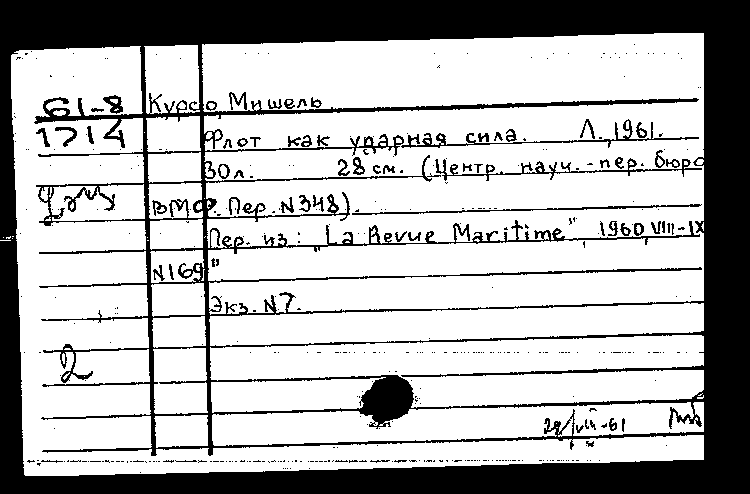 61-8 Курсо, Мишель
1714 Флот как ударная сила. Л., 1961.
30 л. 28 см. (Центр. науч.-пер. бюро
ВМФ. Пер. N348).
Пер. из: „La Revue Maritime", 1960, VIII-IX
N169"
Экз. N7.
2
28/VIII-61